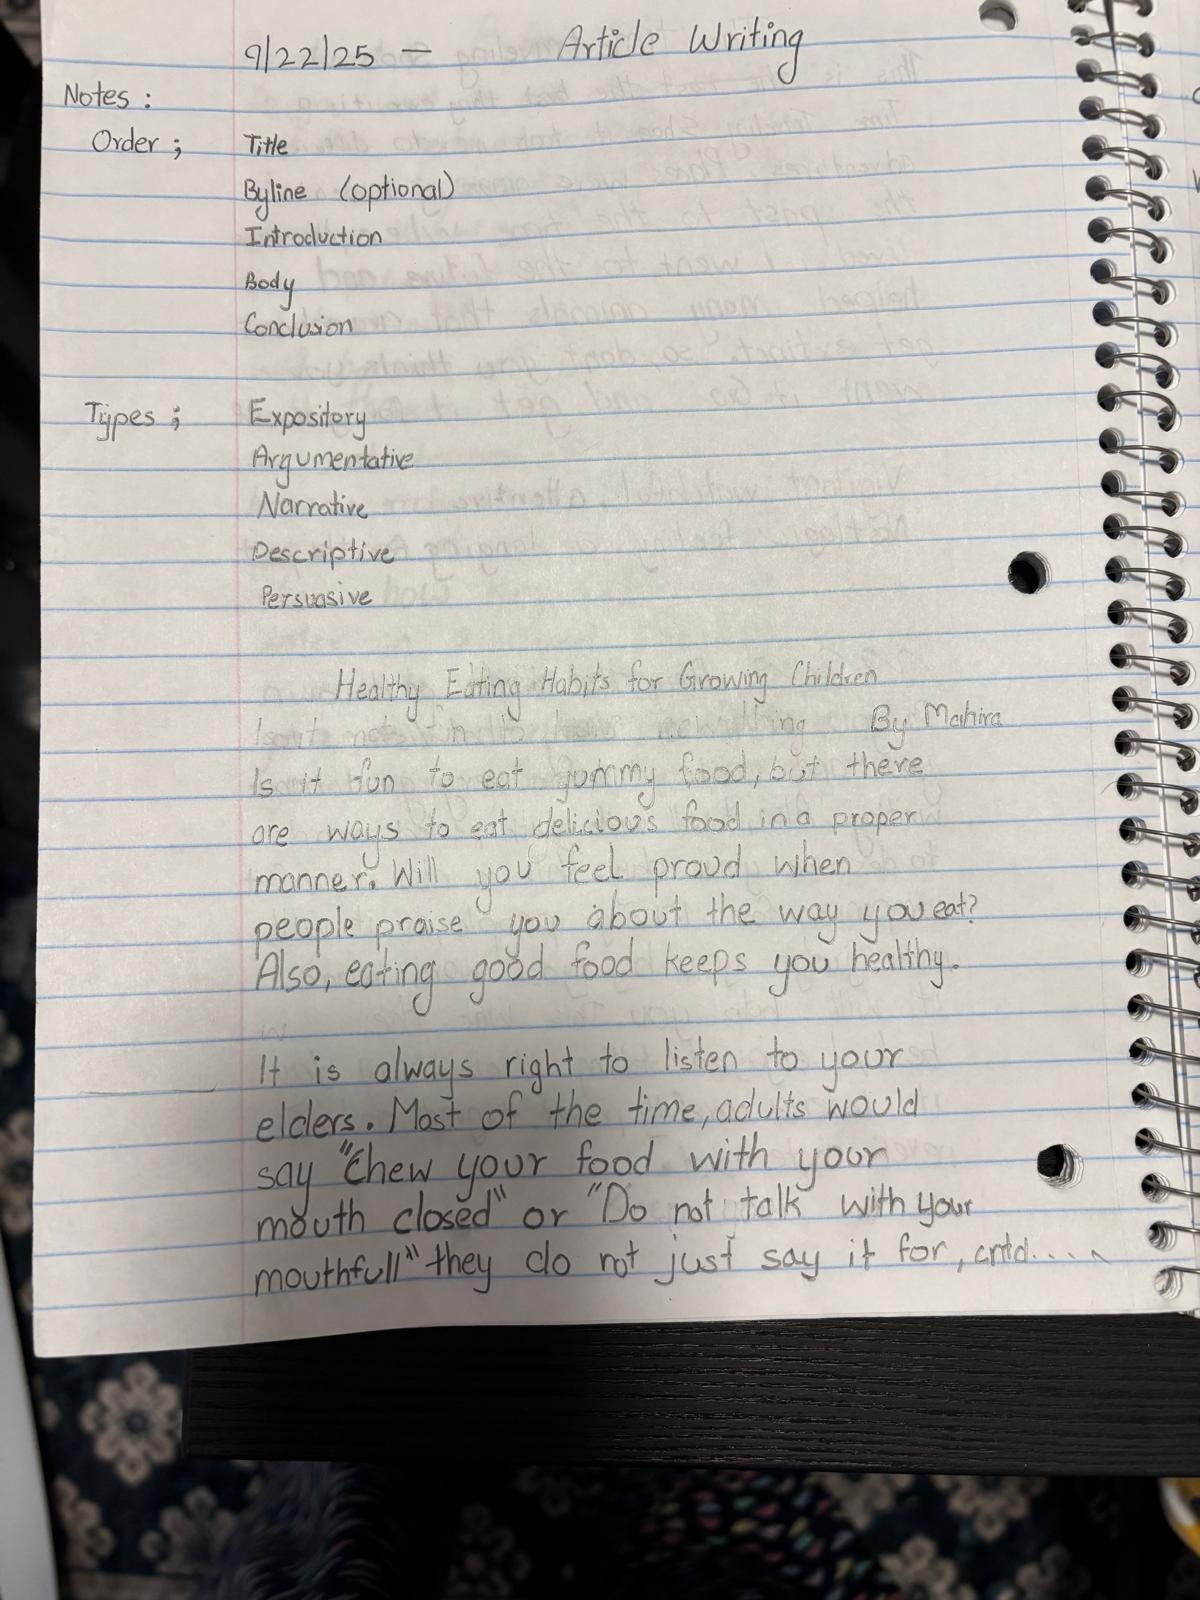 9/22/25 — Article Writing
Notes :
Order ; Title
Byline (optional)
Introduction
Body
Conclusion
Types ; Expository
Argumentative
Narrative
Descriptive
Persuasive
Healthy Eating Habits for Growing Children
By Mahira
Is it fun to eat yummy food, but there
are ways to eat delicious food in a proper
manner. Will you feel proud when
people praise you about the way you eat?
Also, eating good food keeps you healthy.
It is always right to listen to your
elders. Most of the time, adults would
say "Chew your food with your
mouth closed" or "Do not talk with your
mouthfull" they do not just say it for, cntd....